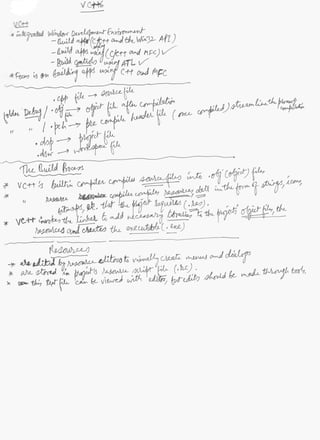 VC++6
VC++
* integrated Window Development Environment
- Build apps (C/C++ and the Win32 API)
- Build apps using (C++ and MFC) ✓
- Build controls using ATL ✓
* Focus is on building apps using C++ and MFC
.cpp file → source file
folder Debug / .obj → object file after compilation
" " / .pch → pre compile header file (once compiled) streamlines the process compilation
.dsp → project file
.dsw → workspace file
The Build Process
* VC++'s builtin compiler compiles source files into .obj (object) files
* " resource compiler compiles resources, dell in the form of strings, icons,
bitmaps, etc. that the project requires (.res).
* VC++ invokes the linker to add necessary libraries to the project's object files, the
resources and creates the executable (.exe)
Resources
* are edited by resource editors to visually create menus and dialogs
* are stored in project's resource script file (.rc).
* this text file can be viewed with editor, but edits should be made through tools.